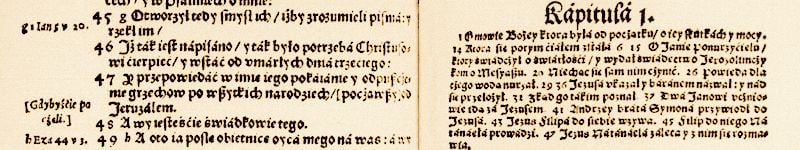 piśmiech y w psalmiech o mnie:
g 1 Ians v 20.
45 g Otworzył tedy smysł ich / iżby zrozumieli pisma: y
rzekł im /
46 Iż tak iest nápisano / y ták było potrzebá Christuso-
wi cierpieć / y wstać od umarłych dniá trzeciego:
47 Y przepowiedáć w imię iego pokaianie y odpuszcze-
nie grzechow po wszytkich narodziech / [począwszy] od
[Gdybyście po
częli.]
Jeruzalem.
48 A wy iesteście świádkowie tego.
h Eza 44 v 3.
49 h A oto ia posle obietnice oycá mego ná was: a wy
Kápitulá 1.
1 O mowie Bożey ktora była od początku / o iey skutkách y mocy.
14 Ktora się potym ciáłem zstáłá 6 15 O Janie Ponurzycielu /
ktory świádczył o świátłości / y wydał świádectwo Jerozolimczy
kom o Mesyaszu. 20 Niechce się sam nim czynić. 26 Powieda dla
czego wodą nurzał. 29 36 Jezusa vkazał y báránem nazwał: y nád
się przełożył. 31 Zkąd go tákim poznał. 37 Dwá Janowi vcżnio-
wie idą zá Jezusem. 41 Andrzey bráta Symoná przywiodł do
Jezusá. 43 Jezus Filipá do siebie wzywa. 45 Filip do niego Ná
tanáelá prowádzi. 47 Jezus Nátanáelá zaleca y z nim się rozma-
wia.